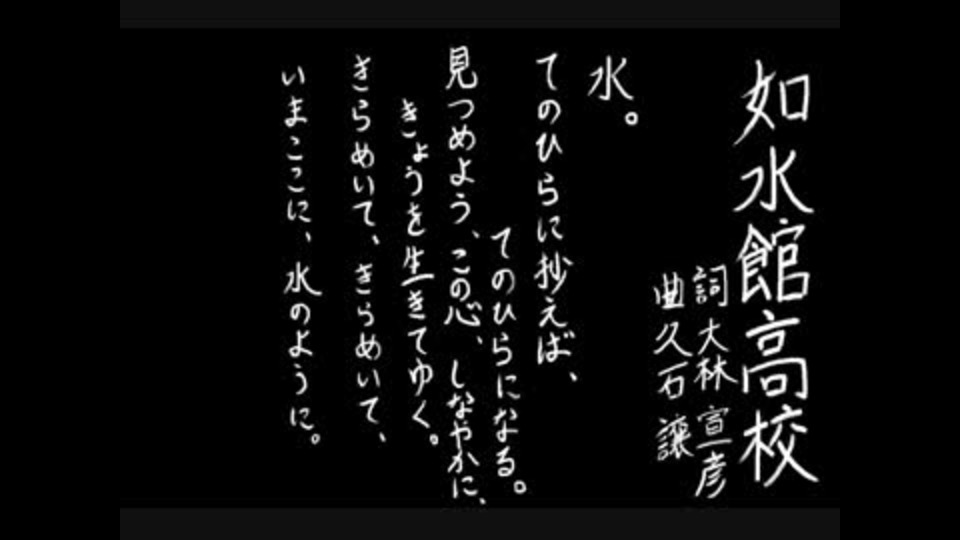 如水館高校
詞 大林 宣彦
曲 久石 譲
水。
てのひらに抄えば、
てのひらになる。
見つめよう、この心、しなやかに、
きょうを生きてゆく。
きらめいて、きらめいて、
いまここに、水のように。